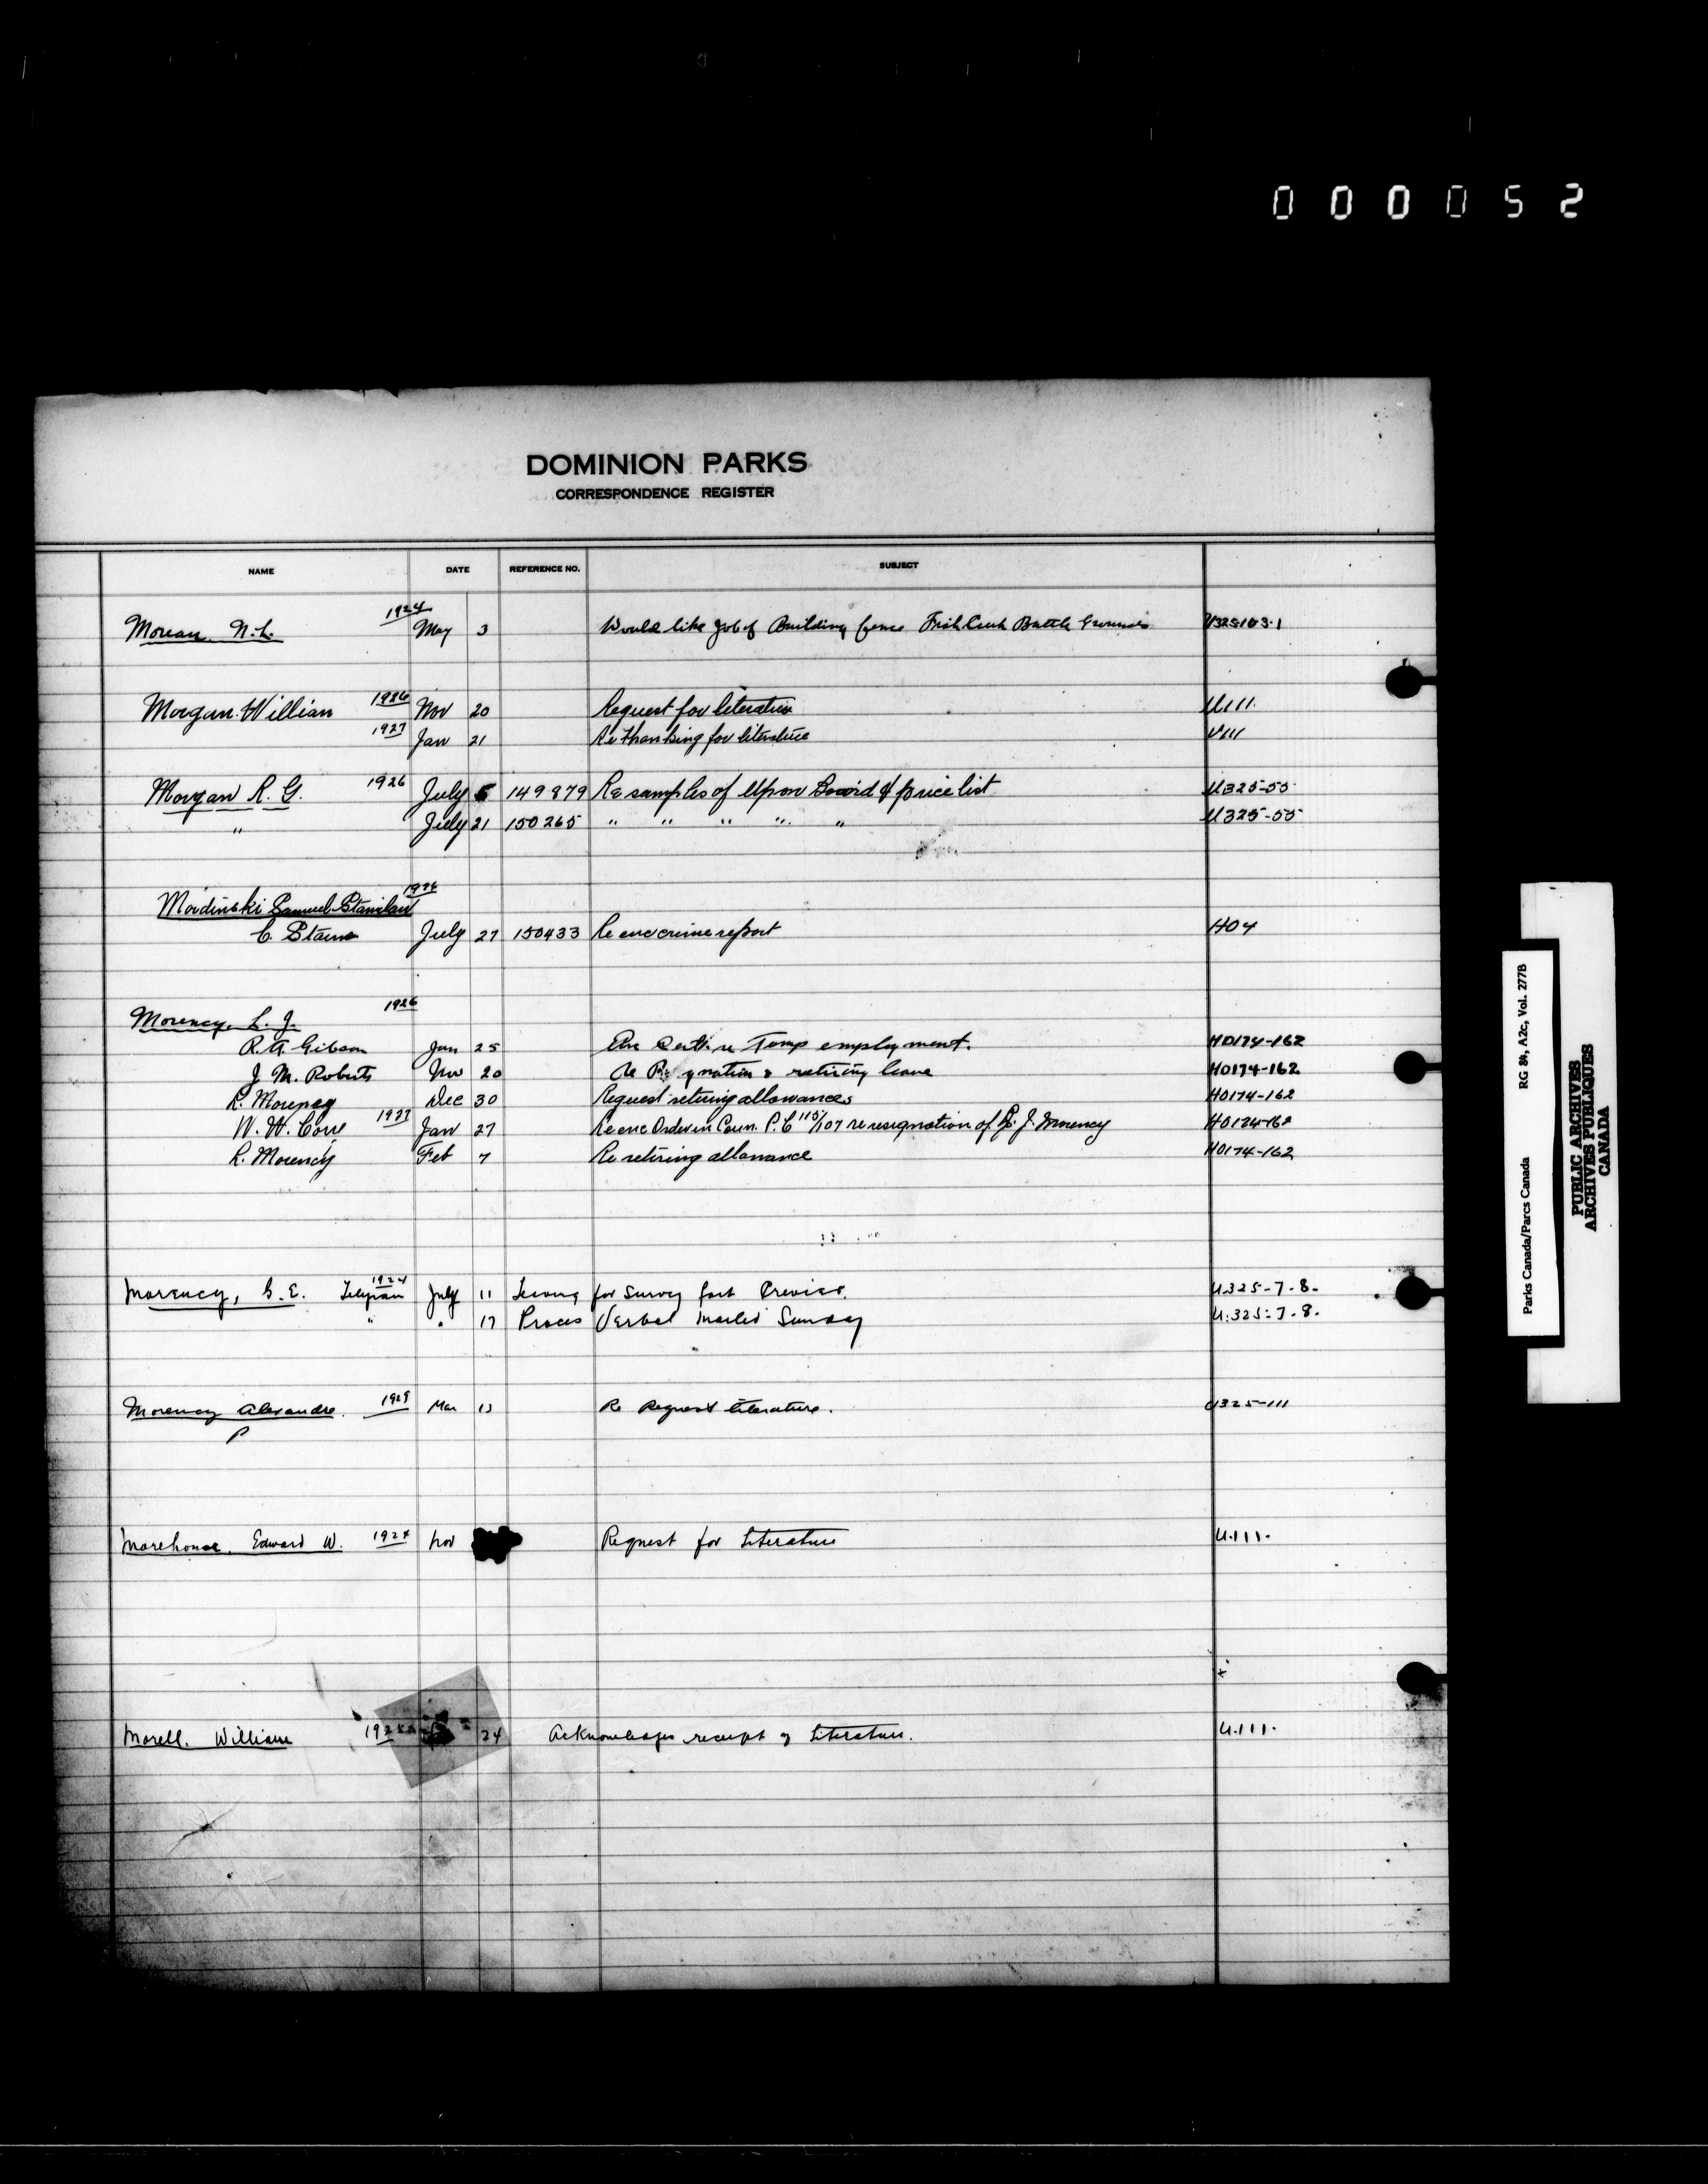 000052
DOMINION PARKS
CORRESPONDENCE REGISTER
NAME DATE REFERENCE NO. SUBJECT
Moreau. N.L. 1924 May 3 Would like job of Building fence Fish Creek Battle Grounds U325-103-1
Morgan William 1926 Nov 20 Request for literature U111.
1927 Jan 21 Re thanking for literature U111
Morgan R. G. 1926 July 5 149879 Re samples of Upson Board & price list U325-55
" July 21 150265 " " " " " U325-55
1926
Mordinski Samuel Stanilaw
C. Staines July 27 150433 Re enc crime report HO4
Morency, L. J. 1926
R.A. Gibson Jan 25 Temp employment. HO174-162
J. M. Roberts Nov 20 Re & retiring leave HO174-162
L. Morency Dec 30 Request retiring allowances HO174-162
W. W. Cory 1927 Jan 27 Re enc Order in Coun. P.C 115/107 re resignation of L. J. Morency HO174-162
L. Morency Feb 7 Re retiring allowance HO174-162
Morency, G. E. 1924 July 11 Leaving for Survey fort U.325-7-8.
" " 17 Proces Verbal Survey U.325-7-8.
Morency Alexandre. 1929 Mar 13 Re Request literature. U325-111
P
Morehouse. Edward W. 1924 Nov Request for Literature U.111.
Morell. William 1925 24 Acknowledges receipt of Literature. U.111.
Parks Canada/Parcs Canada RG 84, A2c, Vol. 277B
PUBLIC ARCHIVES
ARCHIVES PUBLIQUES
CANADA